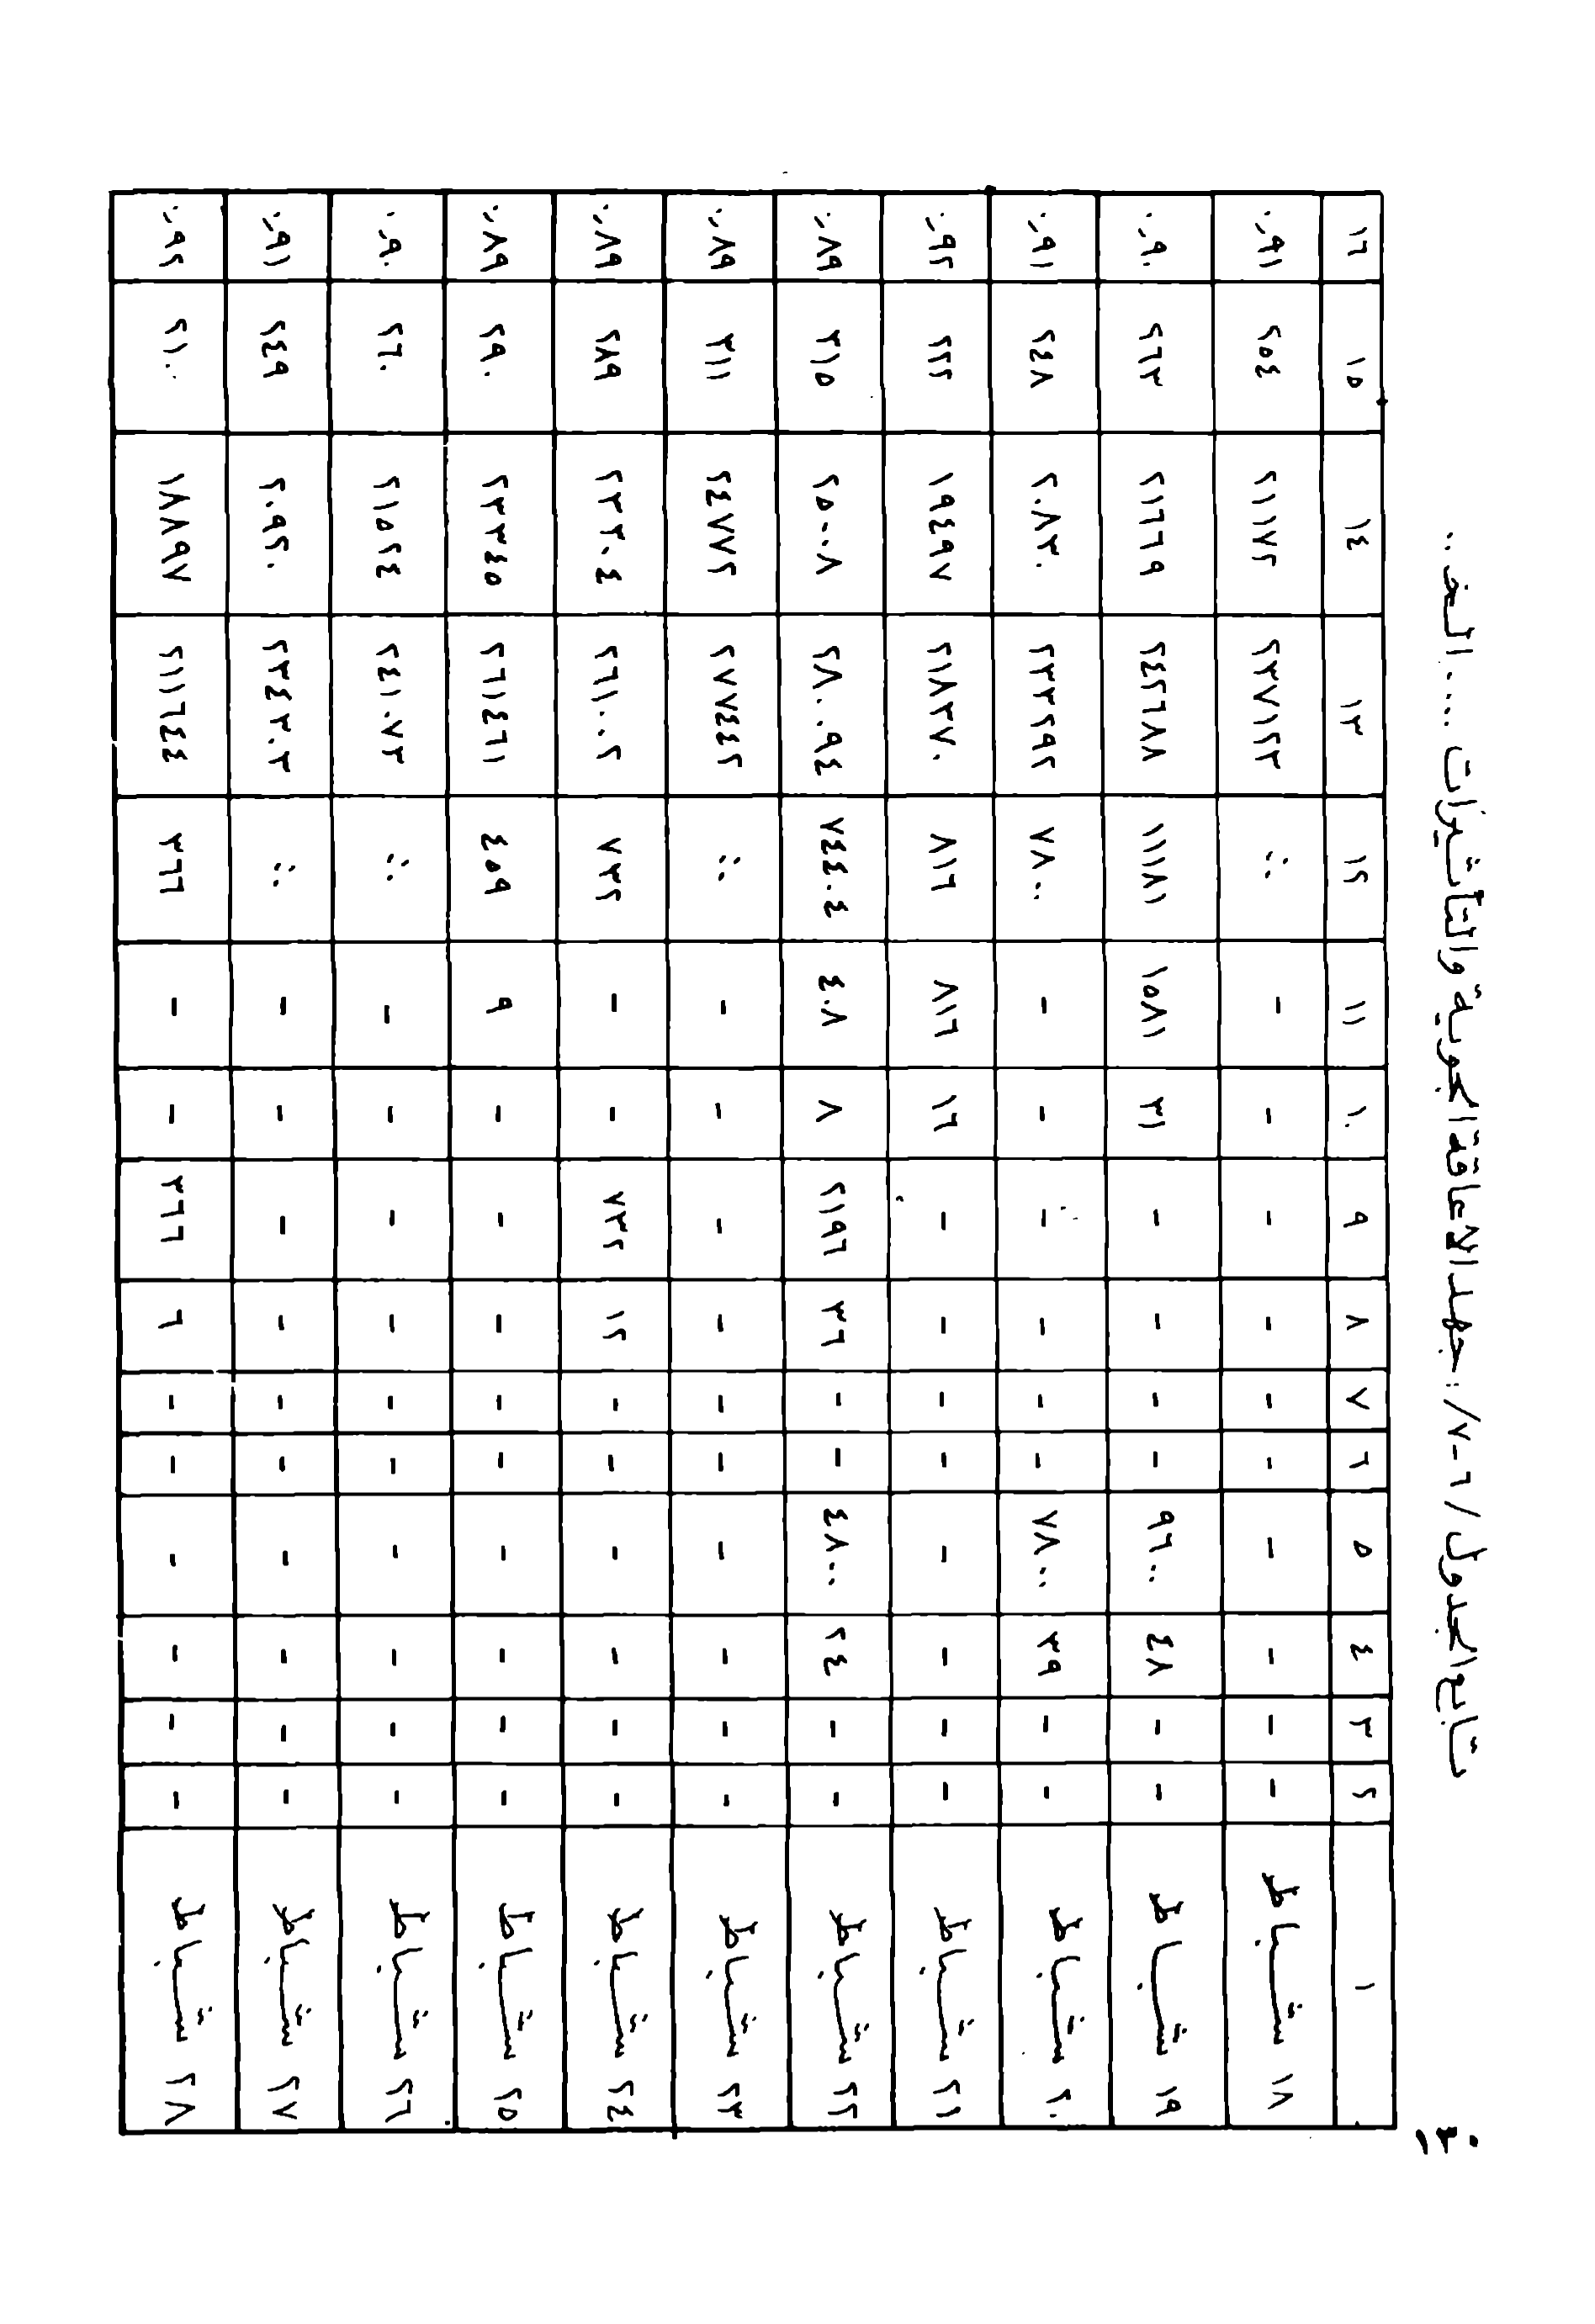 ١٣٠
تابع الجدول /٦-٧/: جهد الاعاقة الجوية والتأثيرات .... الخ ..
١ ٢ ٣ ٤ ٥ ٦ ٧ ٨ ٩ ١٠ ١١ ١٢ ١٣ ١٤ ١٥ ١٦
١٨ شباط - - - - - - - - - - ∴ ٢٣٧١٢٣ ٢١١٧٢ ٢٥٤ ٠,٩١
١٩ شباط - - ٤٨ ٩٦٠٠ - - - - ٣١ ١٥٨١ ١١١٨١ ٢٤٢٦٨٨ ٢١٦٦٩ ٢٦٣ ٠,٩٠
٢٠ شباط - - ٣٩ ٧٨٠٠ - - - - - - ٧٨٠٠ ٢٣٣٢٩٢ ٢٠٨٣٠ ٢٤٨ ٠,٩١
٢١ شباط - - - - - - - - ١٦ ٨١٦ ٨١٦ ٢١٨٣٧٠ ١٩٤٩٧ ٢٢٢ ٠,٩٢
٢٢ شباط - - ٢٤ ٤٨٠٠ - - ٣٦ ٢١٩٦ ٨ ٤٠٨ ٧٤٤٠٤ ٢٨٠٠٩٤ ٢٥٠٠٨ ٣١٥ ٠,٨٩
٢٣ شباط - - - - - - - - - - ∴ ٢٧٧٤٤٢ ٢٤٧٧٢ ٣١١ ٠,٨٩
٢٤ شباط - - - - - - ١٢ ٧٣٢ - - ٧٣٢ ٢٦١٠٠٢ ٢٣٣٠٤ ٢٨٩ ٠,٨٩
٢٥ شباط - - - - - - - - - ٩ ٤٥٩ ٢٦١٤٦١ ٢٣٣٤٥ ٢٩٠ ٠,٨٩
٢٦ شباط - - - - - - - - - - ∴ ٢٤١٠٧٣ ٢١٥٢٤ ٢٦٠ ٠,٩٠
٢٧ شباط - - - - - - - - - - ∴ ٢٣٤٣٠٣ ٢٠٩٢٠ ٢٤٩ ٠,٩١
٢٨ شباط - - - - - - ٦ ٣٦٦ - - ٣٦٦ ٢١١٦٤٤ ١٨٨٩٧ ٢١٠٠ ٠,٩٢